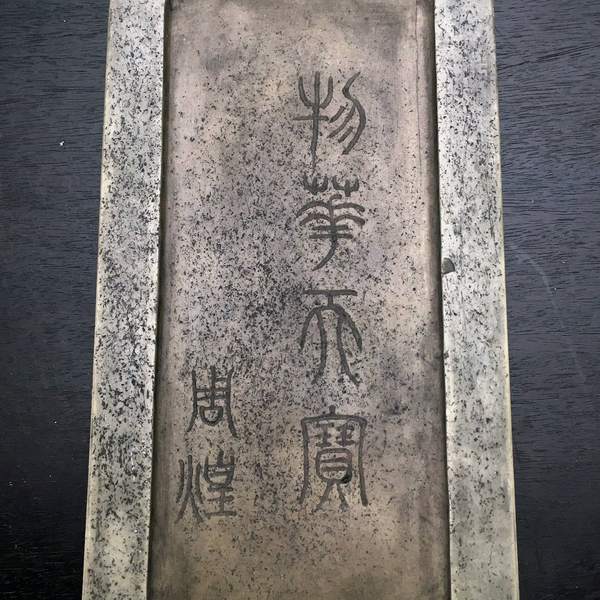 物華天寶
周煌